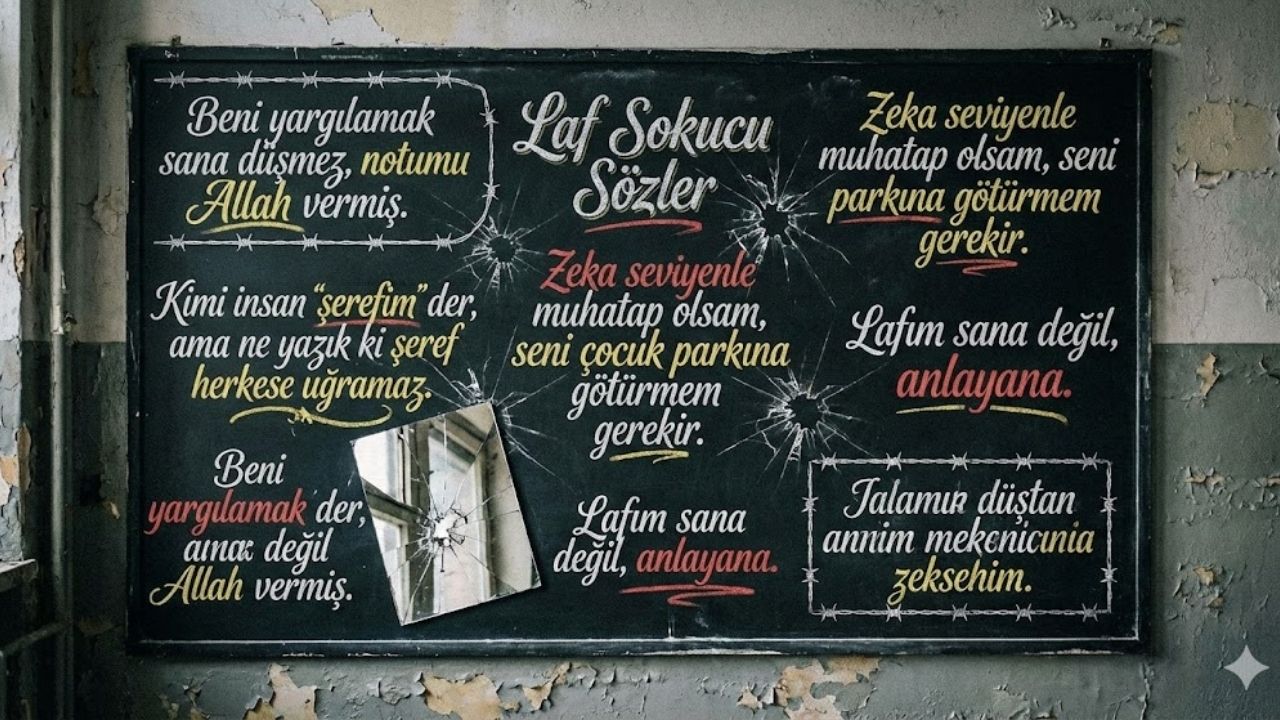 Beni yargılamak
sana düşmez, notumu
Allah vermiş.
Laf Sokucu
Sözler
Zeka seviyenle
muhatap olsam, seni
parkına götürmem
gerekir.
Kimi insan “şerefim” der,
ama ne yazık ki şeref
herkese uğramaz.
Zeka seviyenle
muhatap olsam,
seni çocuk parkına
götürmem
gerekir.
Lafım sana değil,
anlayana.
Beni
yargılamak der,
değil
Allah vermiş.
Lafım sana
değil, anlayana.
düştan
zeksehim.